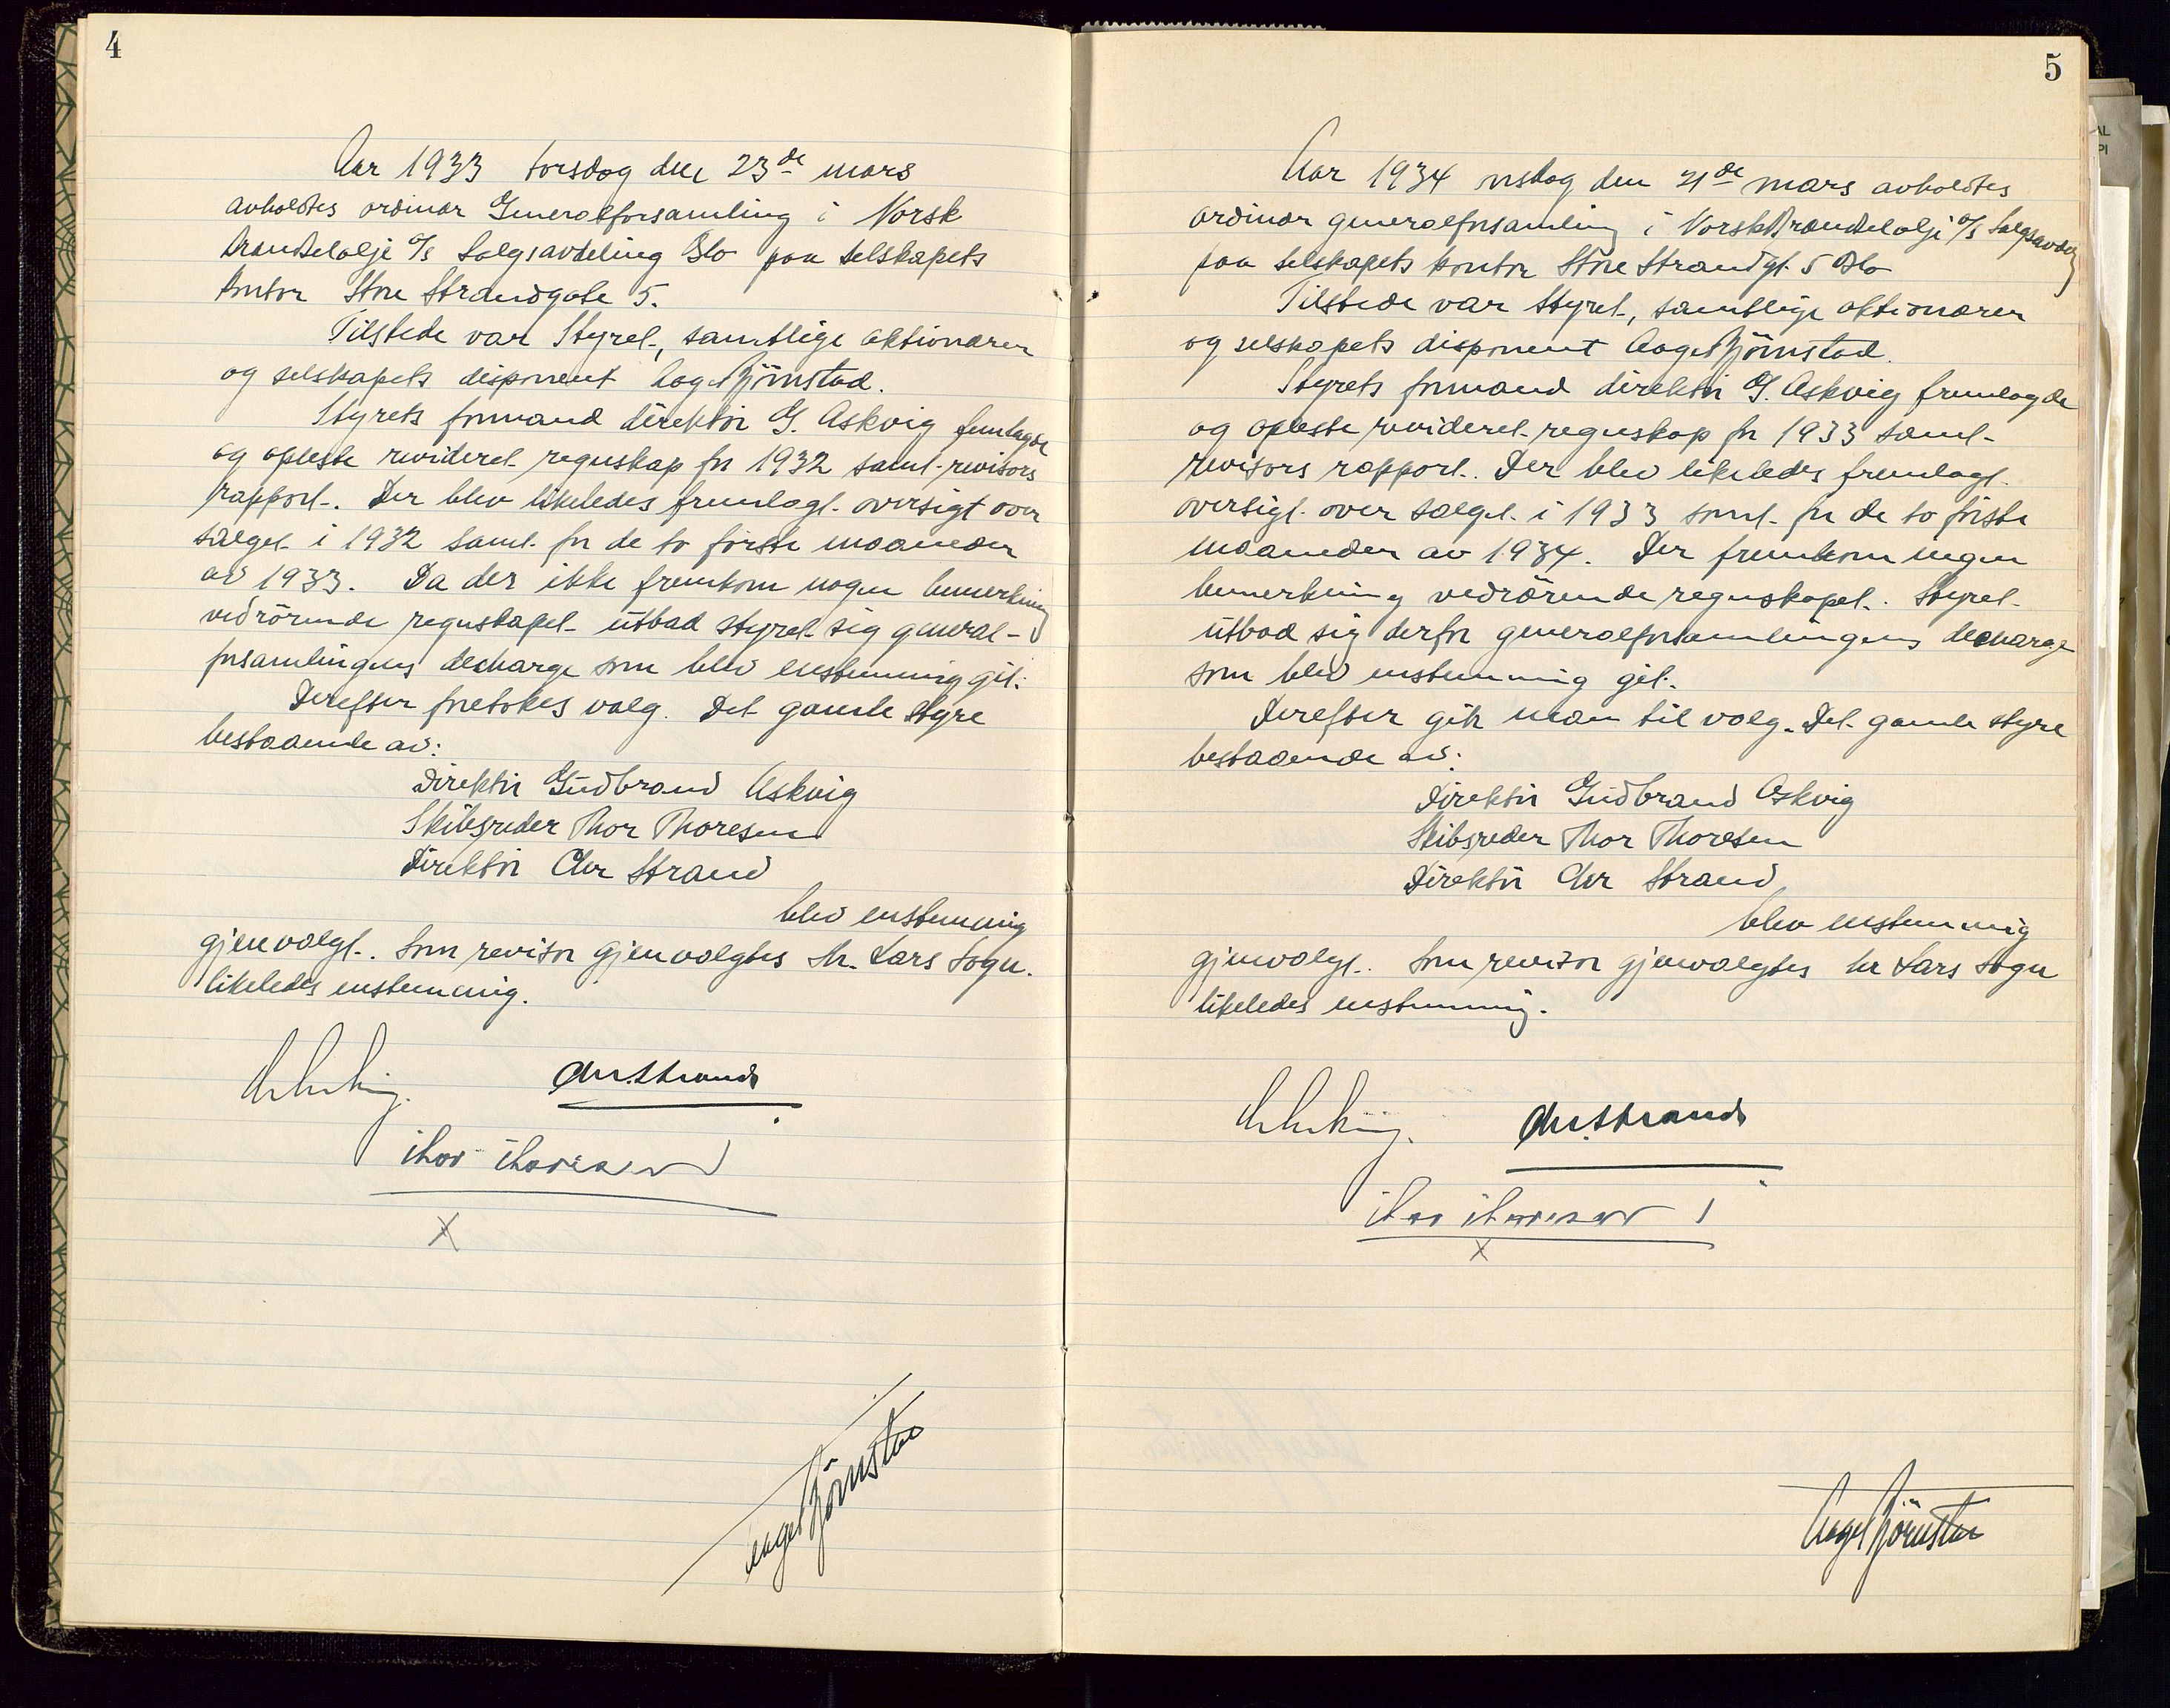 4
Aar 1933 torsdag den 23de mars
avholdtes ordinær Generalforsamling i Norsk
Brændselolje A/S Salgsavdeling Oslo paa selskapets
kontor Store Strandgate 5.
Tilstede var Styret, samtlige aktionærer
og selskapets disponent Aage Bjørnstad.
Styrets formand direktør G. Askvig fremlagde
og opleste revideret regnskap for 1932 samt revisors
rapport. Der blev likeledes fremlagt oversigt over
salget i 1932 samt for de to første maaneder
av 1933. Da der ikke fremkom nogen bemerkning
vedrørende regnskapet utbad styret sig general-
forsamlingens decharge som blev enstemmig git.
Derefter foretokes valg. Det gamle styre
bestaaende av:
Direktør Gudbrand Askvig
Skibsreder Thor Thoresen
Direktør Chr Strand
blev enstemmig
gjenvalgt. Som revisor gjenvalgtes hr. Lars Sogn.
likeledes enstemmig.
Chr. Strand
Thor Thoresen
X
Aage Bjørnstad
5
Aar 1934 onsdag den 21de mars avholdtes
ordinær generalforsamling i Norsk Brændselolje A/S Salgsavdeling
paa selskapets kontor Store Strandgt. 5 Oslo
Tilstede var Styret, samtlige aktionærer
og selskapets disponent Aage Bjørnstad.
Styrets formand direktør G. Askvig fremlagde
og opleste revideret regnskap for 1933 samt
revisors rapport. Der blev likeledes fremlagt
oversigt over salget i 1933 samt for de to første
maaneder av 1934. Der fremkom ingen
bemerkning vedrørende regnskapet. Styret
utbad sig derfor generalforsamlingens decharge
som blev enstemmig git.
Derefter gik man til valg. Det gamle styre
bestaaende av:
Direktør Gudbrand Askvig
Skibsreder Thor Thoresen
Direktør Chr Strand
blev enstemmig
gjenvalgt. Som revisor gjenvalgtes hr Lars Sogn
likeledes enstemmig.
Chr. Strand
Thor Thoresen
X
Aage Bjørnstad